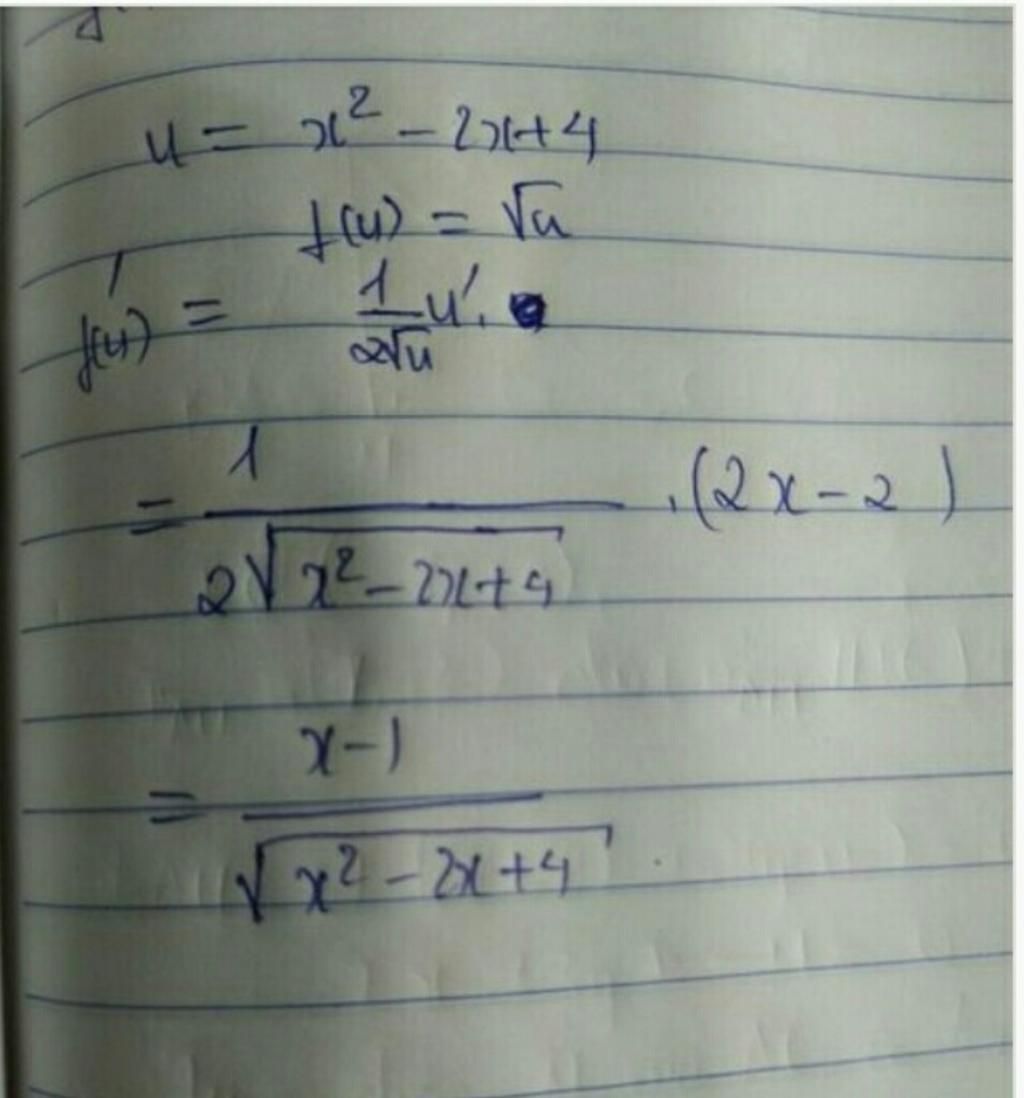 u = x² - 2x+4
f(u) = √u
f'(u) = 1/2√u u'.
= 1/2√x²-2x+4 .(2x-2)
= x-1/√x²-2x+4